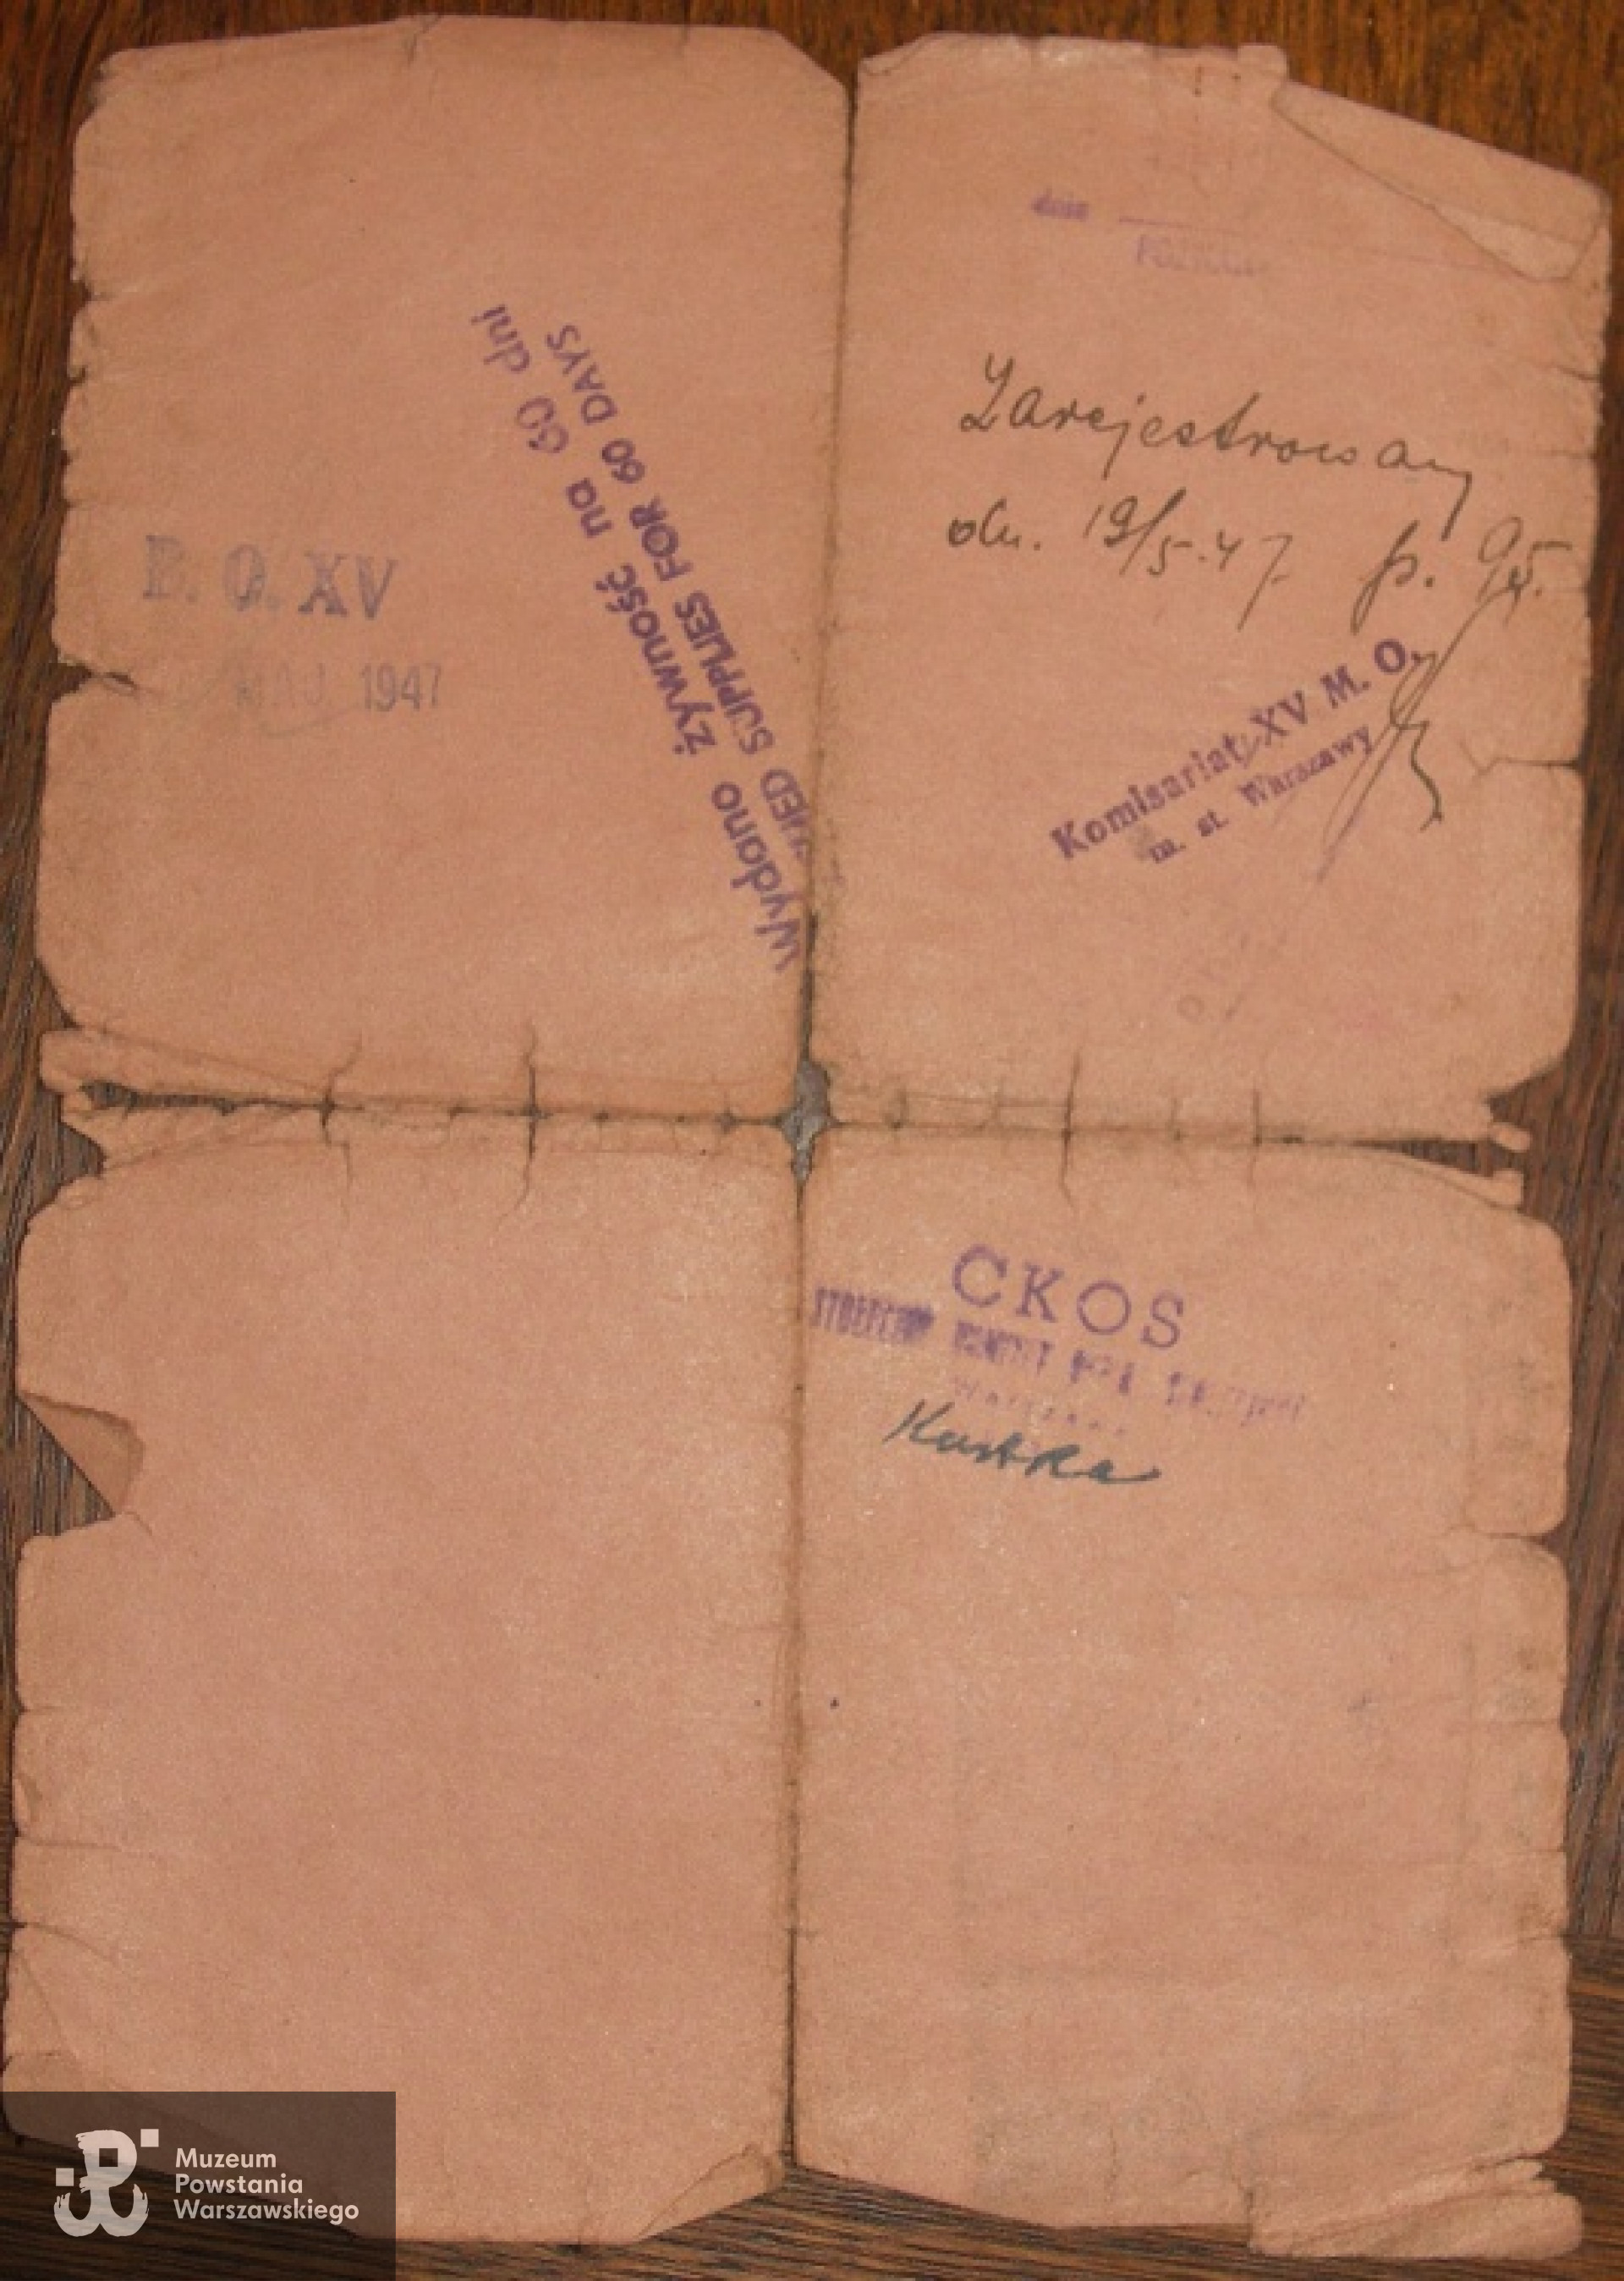 Wydano żywność na 60 dni
SUPPLIES FOR 60 DAYS
B. O. XV
MAJ 1947
dnia
Zarejestrowany
dn. 19/5.47 p. 95.
Komisariat XV M. O.
m. st. Warszawy
CKOS
STOŁECZNY KOMITET
Warszawa
Kostka
Muzeum
Powstania
Warszawskiego